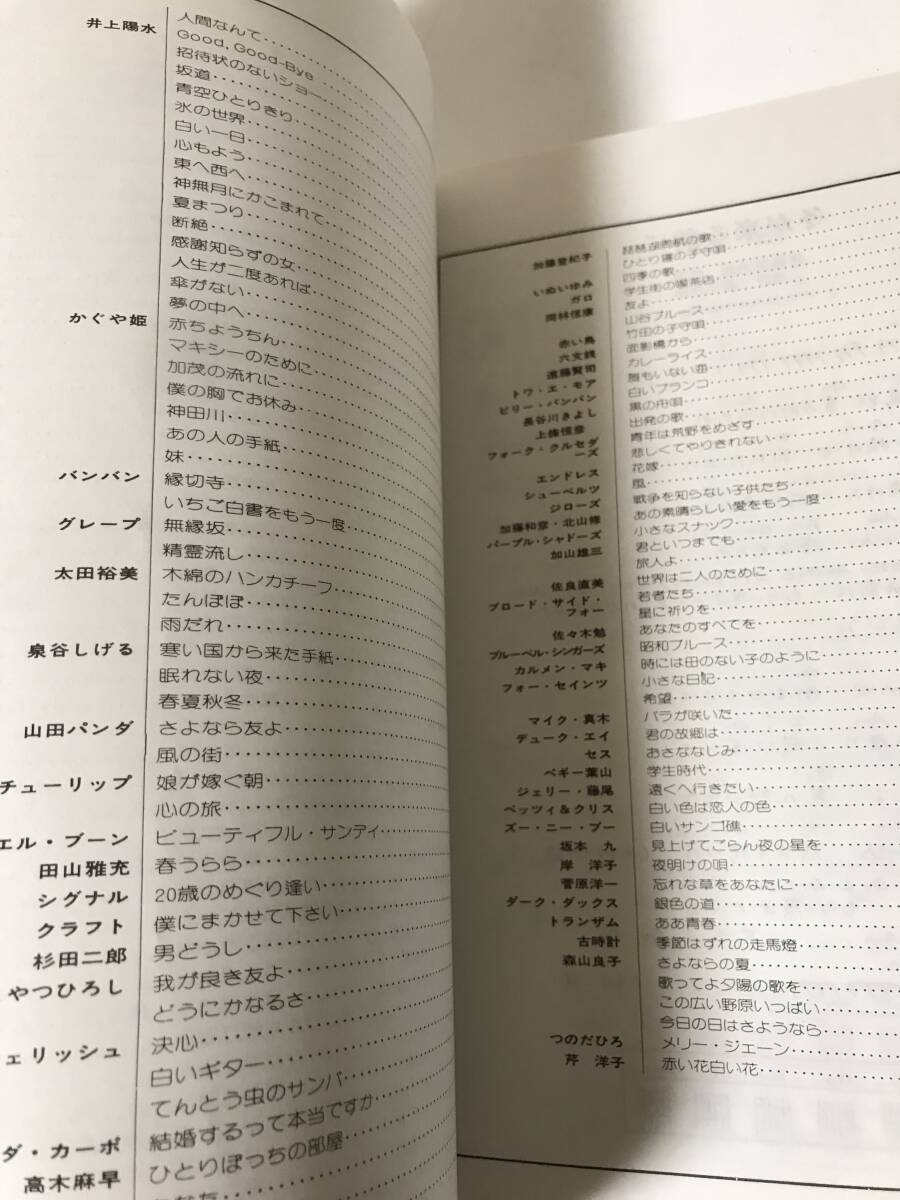 人間なんて
井上陽水 Good, Good-Bye
招待状のないショー
坂道
青空ひとりきり
氷の世界
白い一日
心もよう
東へ西へ
神無月にかこまれて
夏まつり
断絶
感謝知らずの女
人生が二度あれば
傘がない
夢の中へ
かぐや姫 赤ちょうちん
マキシーのために
加茂の流れに
僕の胸でお休み
神田川
あの人の手紙
妹
バンバン 縁切寺
いちご白書をもう一度
グレープ 無縁坂
精霊流し
太田裕美 木綿のハンカチーフ
たんぽぽ
雨だれ
泉谷しげる 寒い国から来た手紙
眠れない夜
春夏秋冬
山田パンダ さよなら友よ
風の街
チューリップ 娘が嫁ぐ朝
心の旅
エル・ブーン ビューティフル・サンディ
田山雅充 春うらら
シグナル 20歳のめぐり逢い
クラフト 僕にまかせて下さい
杉田二郎 男どうし
やつひろし 我が良き友よ
どうにかなるさ
ェリッシュ 決心
白いギター
てんとう虫のサンバ
結婚するって本当ですか
ダ・カーポ ひとりぼっちの部屋
高木麻早
加藤登紀子 琵琶湖周航の歌
ひとり寝の子守唄
四季の歌
いぬいゆみ 学生街の喫茶店
ガロ 友よ
岡林信康 山谷ブルース
竹田の子守唄
赤い鳥 面影橋から
六文銭 カレーライス
遠藤賢司 誰もいない海
トワ・エ・モア 白いブランコ
ビリー・バンバン 黒の舟唄
長谷川きよし 出発の歌
上條恒彦 青年は荒野をめざす
フォーク・クルセダーズ 悲しくてやりきれない
花嫁
エンドレス 風
シューベルツ 戦争を知らない子供たち
ジローズ あの素晴らしい愛をもう一度
加藤和彦・北山修 小さなスナック
パープル・シャドーズ 君といつまでも
加山雄三 旅人よ
世界は二人のために
佐良直美 若者たち
ブロード・サイド・フォー 星に祈りを
あなたのすべてを
佐々木勉 昭和ブルース
ブルーベル・シンガーズ 時には母のない子のように
カルメン・マキ 小さな日記
フォー・セインツ 希望
バラが咲いた
マイク・真木 君の故郷は
デューク・エイ おさななじみ
セス 学生時代
ペギー葉山 遠くへ行きたい
ジェリー・藤尾 白い色は恋人の色
ベッツィ&クリス 白いサンゴ礁
ズー・ニー・ブー 見上げてごらん夜の星を
坂本 九 夜明けの唄
岸 洋子 忘れな草をあなたに
菅原洋一 銀色の道
ダーク・ダックス ああ青春
トランザム 季節はずれの走馬燈
古時計 さよならの夏
森山良子 歌ってよ夕陽の歌を
この広い野原いっぱい
今日の日はさようなら
つのだひろ メリー・ジェーン
芹 洋子 赤い花白い花